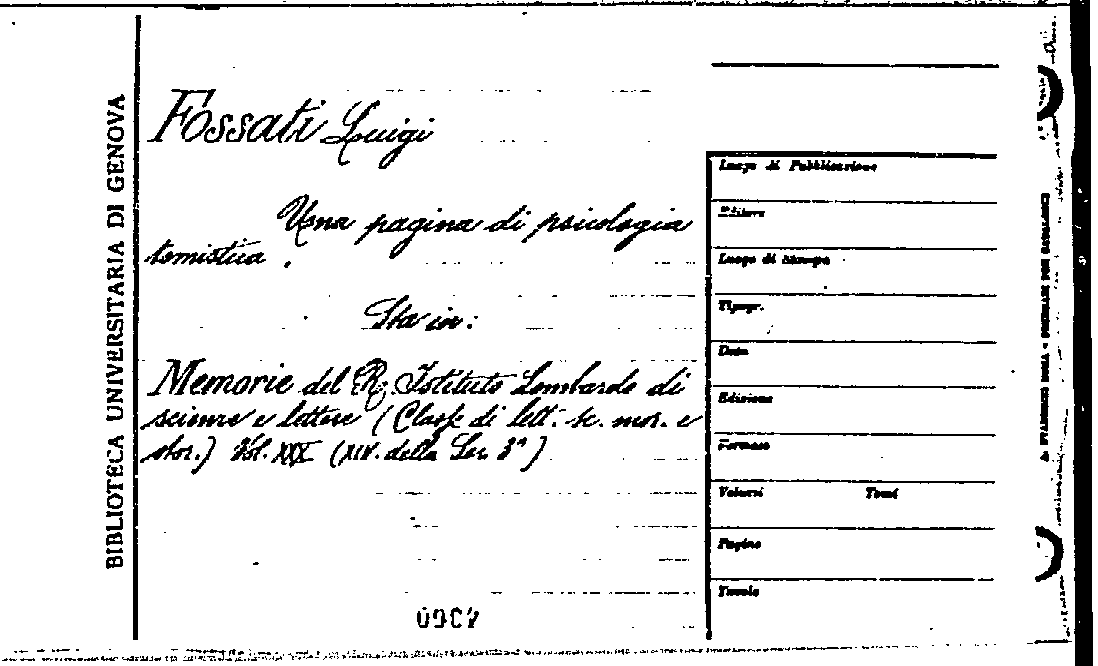 BIBLIOTECA UNIVERSITARIA DI GENOVA
Fossati Luigi
Una pagina di psicologia
tomistica.
Sta in:
Memorie del R. Istituto Lombardo di
scienze e lettere (Classe di lett. sc. mor. e
stor.) Vol. XXX (XIV. della Ser. 3ª)
Luogo di Pubblicazione
Editore
Luogo di Stampa
Tipogr.
Data
Edizione
Formato
Volumi Tomi
Pagine
Tavole